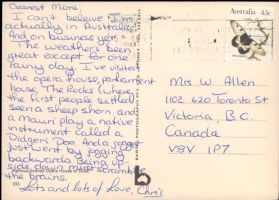 Dearest Mime,
I can't believe I'm
actually in Australia
And on business yet.
The weather's been
great except for one
rainy day. I've visited
the opera house, parliament
house, The Rocks (where
the first people settled
seen a sheep shorn and
a Mauri play a native
instrument called a
Didgeri Doo. And a jogger
just went by jogging
backwards. Being up
side down must scramble
the brains.
Lots and lots of Love, Chris
Australia 45c
Mrs W Allen
1102 620 Toronto St
Victoria, B.C.
Canada
V8V 1P7